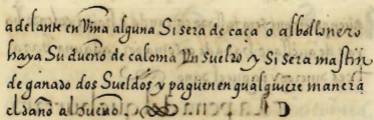 adelante en Viña alguna Si sera de caça o albollonero
haya Su dueño de calonia Un sueldo y Si sera mastin
de ganado dos Sueldos y paguen en qualquiere manera
el daño a[l] dueño